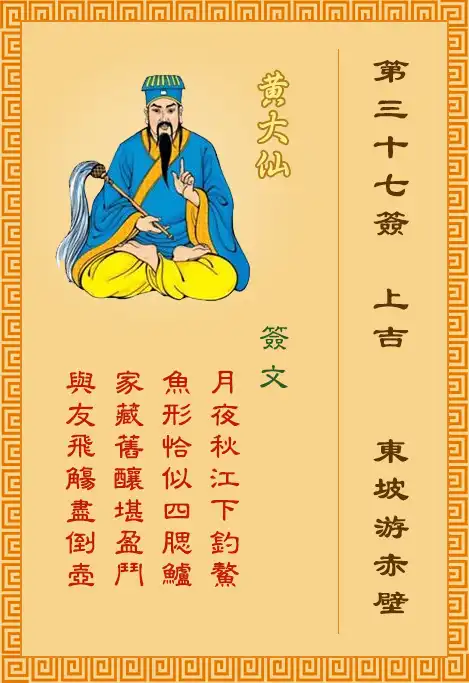 第三十七簽 上吉 東坡游赤壁
黃大仙
簽文
月夜秋江下釣鰲
魚形恰似四腮鱸
家藏舊釀堪盈鬥
與友飛觴盡倒壺